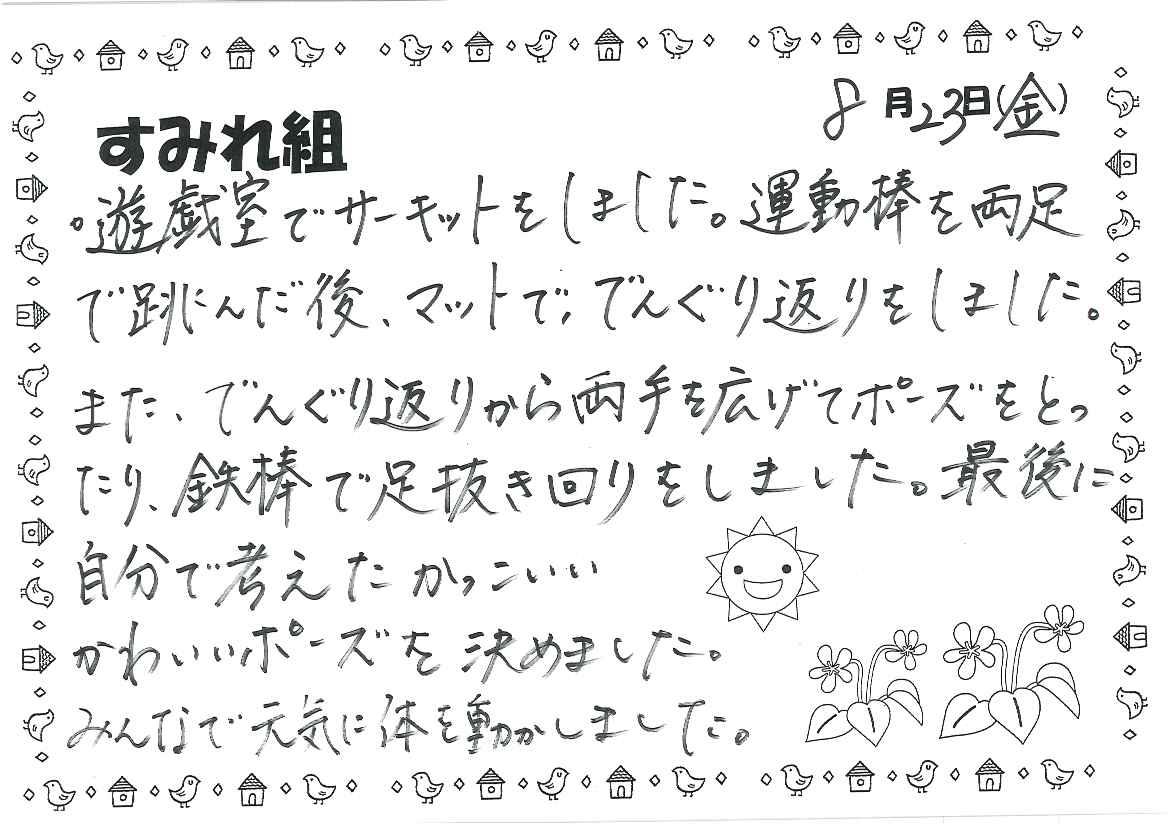 8月23日(金)
すみれ組
。遊戯室でサーキットをしました。運動棒を両足
で跳んだ後、マットで、でんぐり返りをしました。
また、でんぐり返りから両手を広げてポーズをとっ
たり、鉄棒で足抜き回りをしました。最後に
自分で考えたかっこいい
かわいいポーズを決めました。
みんなで元気に体を動かしました。